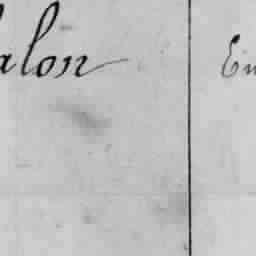 alon
En